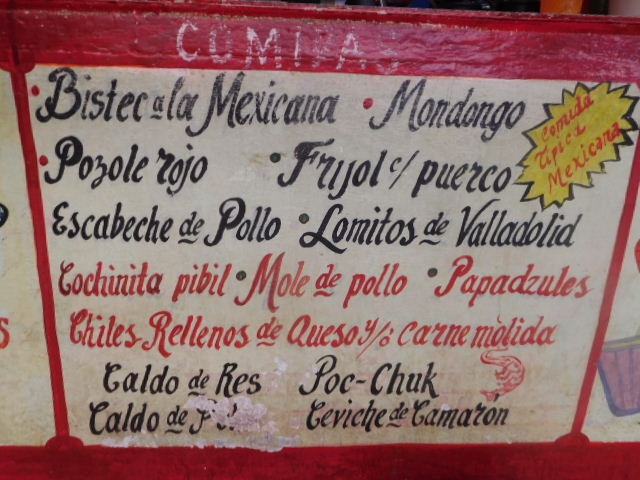 COMIDAS
Bistec a la Mexicana • Mondongo
Comida Tipica Mexicana
Pozole rojo • Frijol c/ puerco
Escabeche de Pollo • Lomitos de Valladolid
Cochinita pibil • Mole de pollo • Papadzules
Chiles Rellenos de Queso y/o carne molida
Caldo de Res Poc-Chuk
Caldo de Ceviche de Camarón